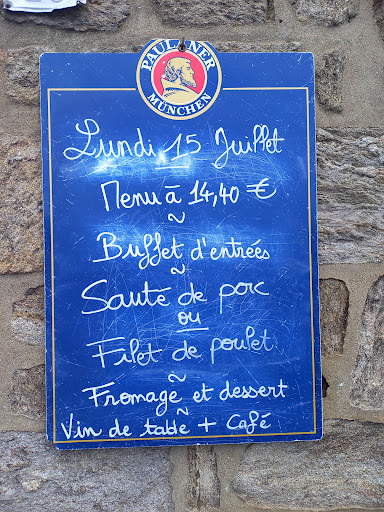 PAULANER
MÜNCHEN
Lundi 15 Juillet
Menu à 14,40 €
~
Buffet d'entrées
~
Sauté de porc
ou
Filet de poulet
~
Fromage et dessert
~
Vin de table + Café